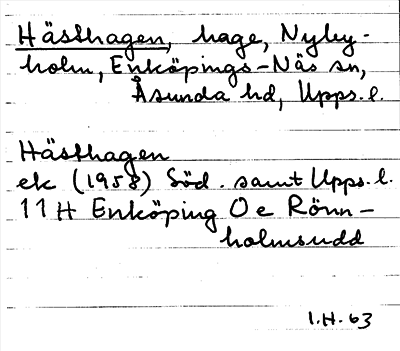 Hästhagen, hage, Nyby-
holm, Enköpings-Näs sn,
Åsunda hd, Upps. l.
Hästhagen
ek (1958) Söd. samt Upps. l.
11 H Enköping O e Rönn-
holmsudd
I.H. 63